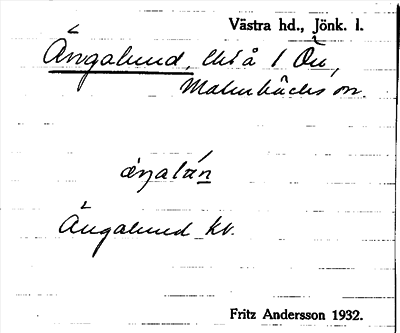 Västra hd., Jönk. l.
Ängalund, lht å 1 Ön,
Malmbäcks sn.
Ängalund kv.
Fritz Andersson 1932.